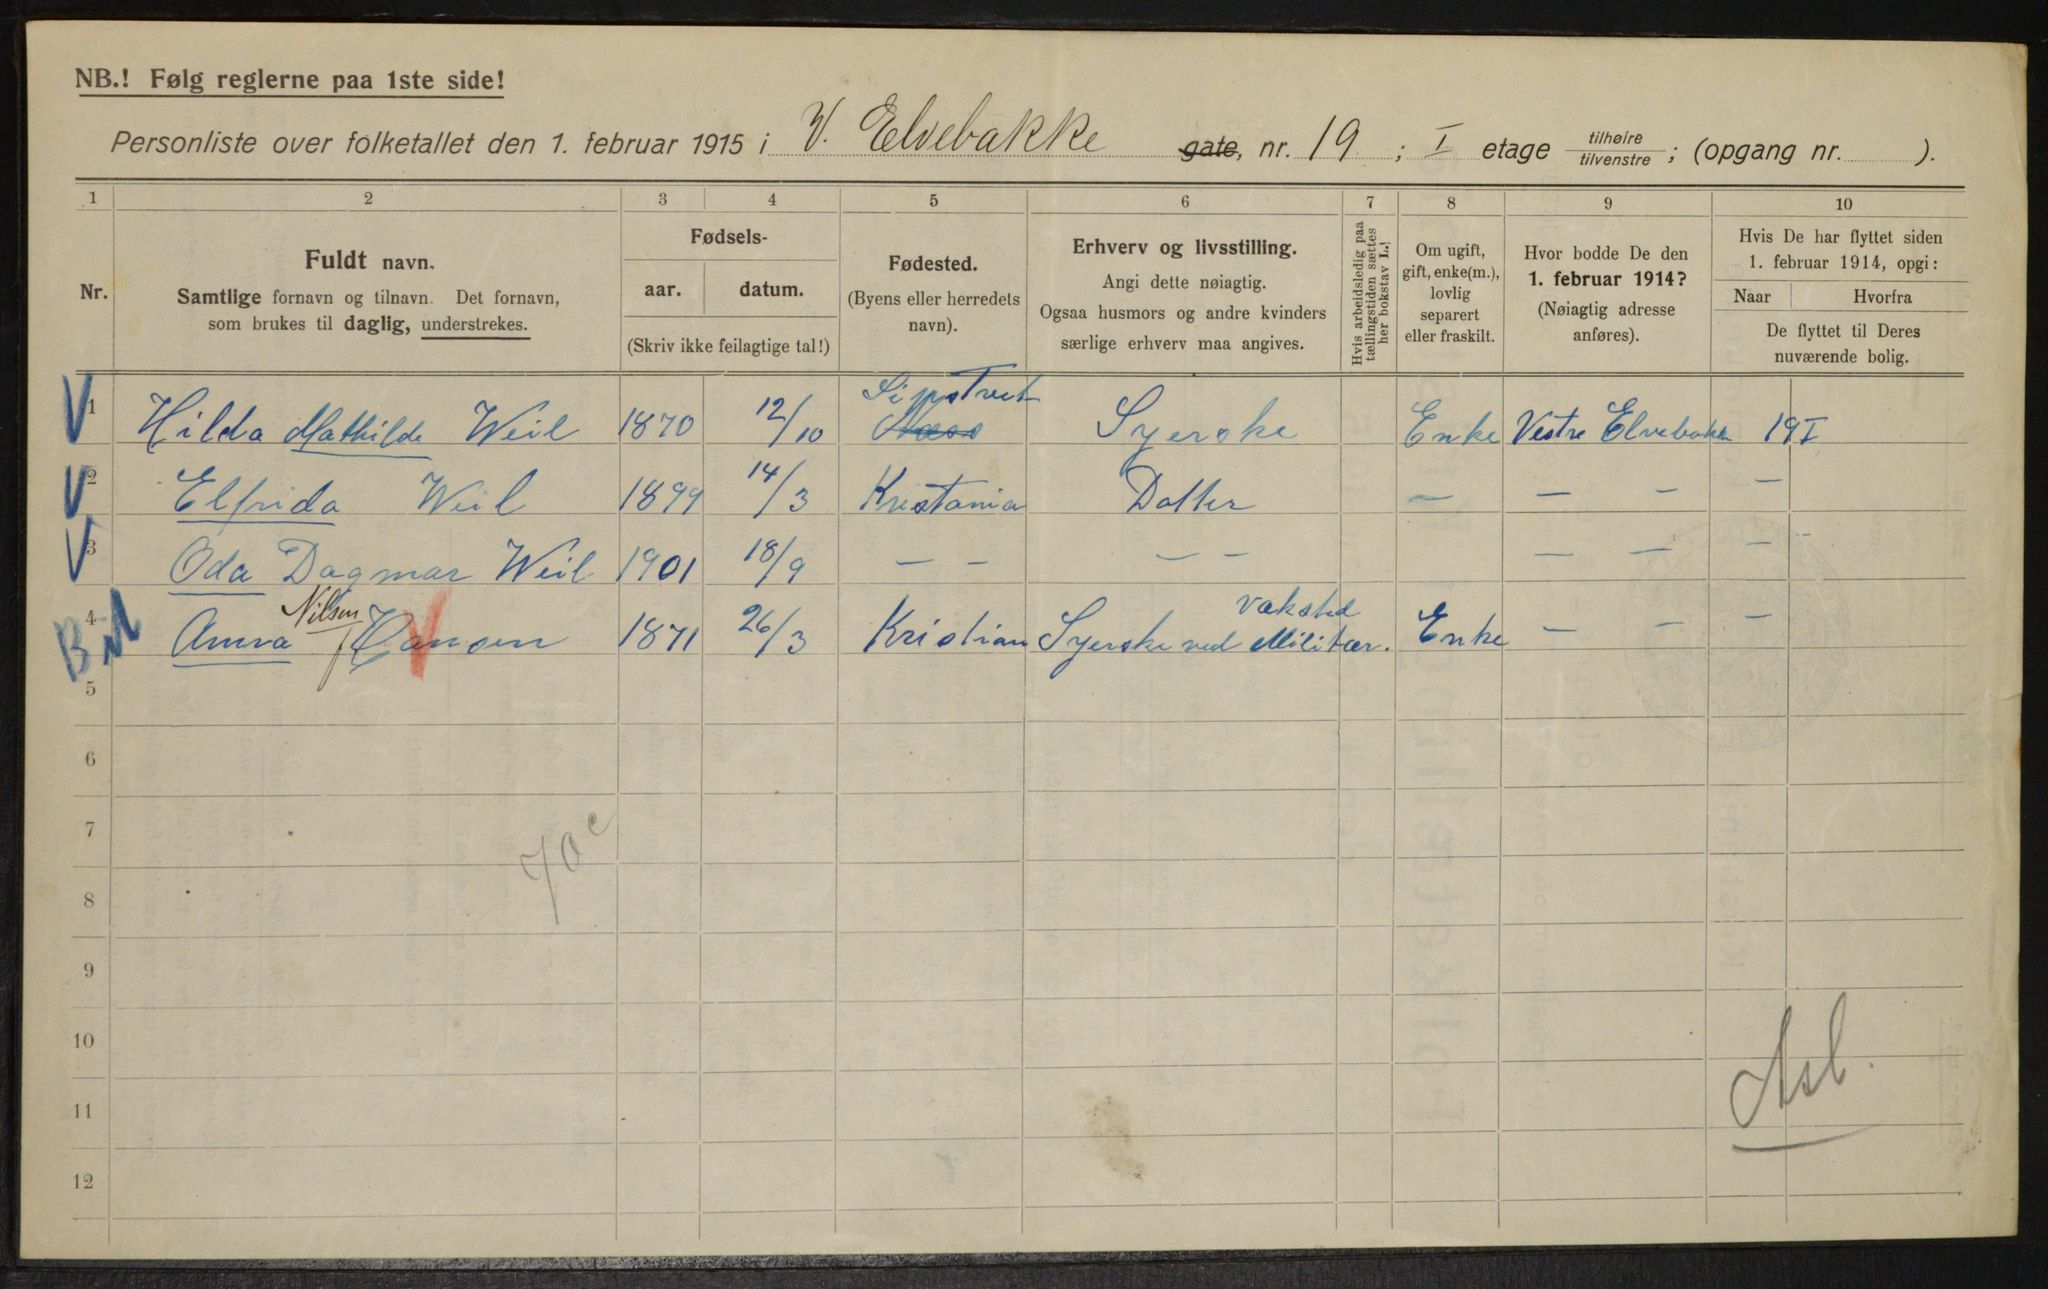 NB.! Følg reglerne paa 1ste side!
Personliste over folketallet den 1. februar 1915 i V. Elvebakke gate, nr. 19 ; I etage tilhøire tilvenstre ; (opgang nr. ).
1 2 3 4 5 6 7 8 9 10
Nr.
Fuldt navn.
Samtlige fornavn og tilnavn. Det fornavn,
som brukes til daglig, understrekes.
Fødsels-
aar. datum.
(Skriv ikke feilagtige tal!)
Fødested.
(Byens eller herredets
navn).
Erhverv og livsstilling.
Angi dette nøiagtig.
Ogsaa husmors og andre kvinders
særlige erhverv maa angives.
Hvis arbeidsledig paa
tællingstiden sættes
her bokstav L.!
Om ugift,
gift, enke(m.),
lovlig
separert
eller fraskilt.
Hvor bodde De den
1. februar 1914?
(Nøiagtig adresse
anføres).
Hvis De har flyttet siden
1. februar 1914, opgi:
Naar Hvorfra
De flyttet til Deres
nuværende bolig.
V 1 Hilda Mathilde Weil 1870 12/10 Syerske Enke Vestre Elvebakke 19 I
V 2 Elfrida Weil 1899 14/3 Kristania Datter — — — —
V 3 Oda Dagmar Weil 1901 18/9 — — — — — — — -
Nilsen Væksted
4 Anna Hansen V 1871 26/3 Kristian Syerske ved Militær. Enke — — —
5
6
7
70 c
8
9
10
Asl.
11
12